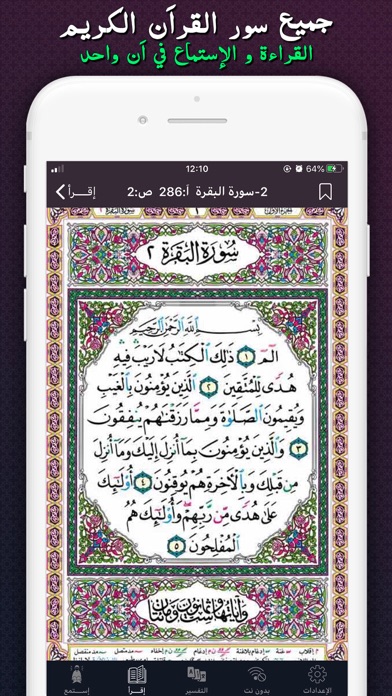 جميع سور القرآن الكريم
القراءة و الإستماع في آن واحد
12:10
64%
إقـرأ
2-سورة البقرة أ:286 ص:2
سورة البقرة ٢
بِسْمِ اللَّهِ الرَّحْمَٰنِ الرَّحِيمِ
الٓمٓ ١ ذَٰلِكَ الْكِتَٰبُ لَا رَيْبَ فِيهِ
هُدًى لِّلْمُتَّقِينَ ٢ الَّذِينَ يُؤْمِنُونَ بِالْغَيْبِ
وَيُقِيمُونَ الصَّلَوٰةَ وَمِمَّا رَزَقْنَٰهُمْ يُنفِقُونَ
٣ وَالَّذِينَ يُؤْمِنُونَ بِمَآ أُنزِلَ إِلَيْكَ وَمَآ أُنزِلَ
مِن قَبْلِكَ وَبِالْآخِرَةِ هُمْ يُوقِنُونَ ٤ أُو۟لَٰٓئِكَ
عَلَىٰ هُدًى مِّن رَّبِّهِمْ وَأُو۟لَٰٓئِكَ هُمُ
الْمُفْلِحُونَ ٥
وآياتها مائتان وست وثمانون
إستمع
إقرأ
التفسير
بدون نت
الإعدادات